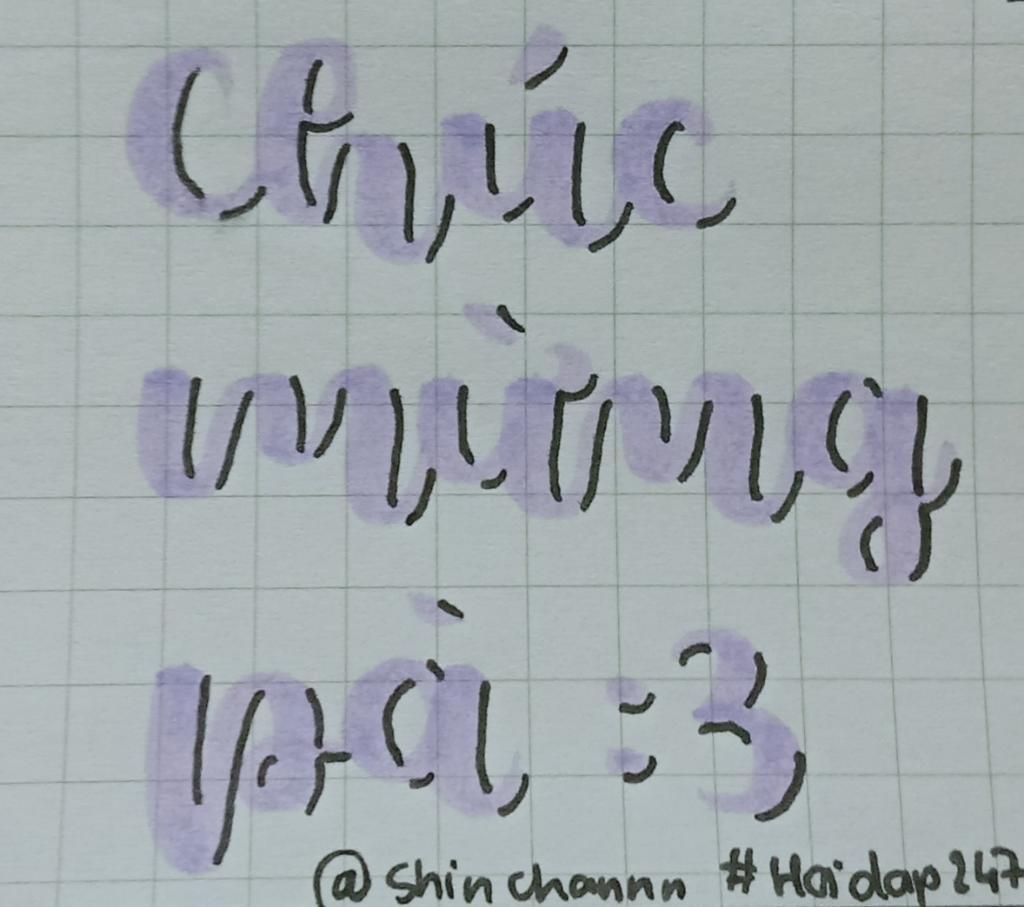 Chúc
mừng
pà :3
@shinchannn #Hoidap247